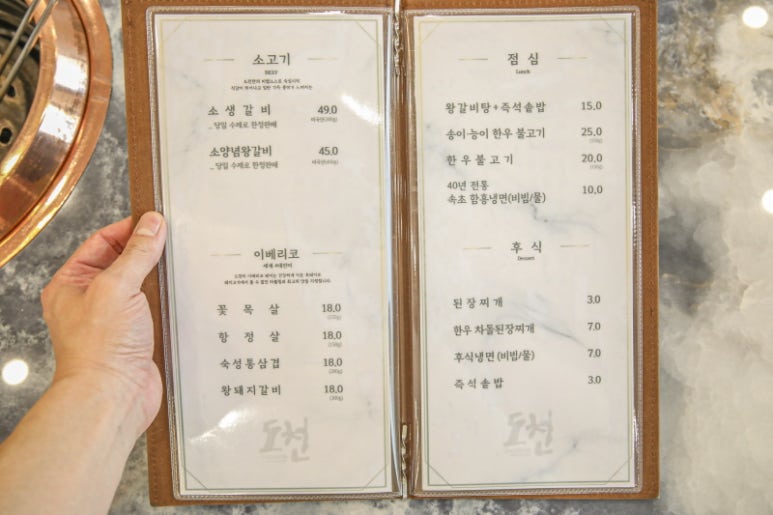 소고기
BEEF
소 생 갈 비 49.0
_ 당일 수제로 한정판매
소양념왕갈비 45.0
_ 당일 수제로 한정판매
이베리코
세계 4대진미
꽃 목 살 18.0
항 정 살 18.0
숙성통삼겹 18.0
왕돼지갈비 18.0
도천
점 심
Lunch
왕갈비탕+즉석솥밥 15.0
송이·능이 한우 불고기 25.0
한 우 불 고 기 20.0
40년 전통
속초 함흥냉면(비빔/물) 10.0
후 식
Dessert
된 장 찌 개 3.0
한우 차돌된장찌개 7.0
후식냉면 (비빔/물) 7.0
즉 석 솥 밥 3.0
도천